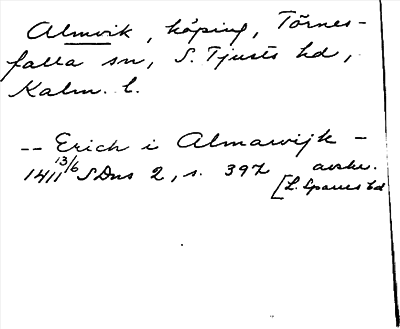 Almvik, köping, Törnes-
falla sn, S. Tjusts hd,
Kalm. l.
-- Erich i Almawijk -
1411 13/6 SDns 2, s. 397 avskr.
[L. Sparres hd